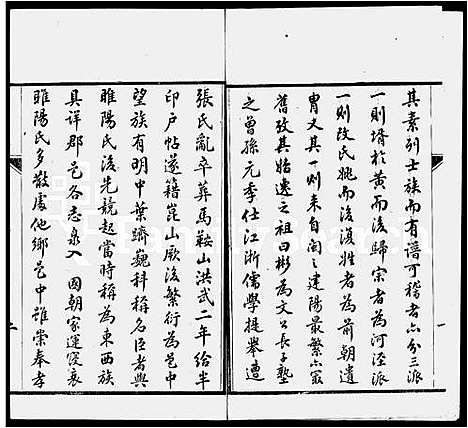 其素列士族而有譜可稽者六分三派
一則壻於黃而後歸宗者為河涇派
一則改氏姚而後復姓者為前朝遺
冑又其一則来自閩之建陽最繁亦最
舊攷其始遷之祖曰彬為文公長子塾
之曾孫元季仕江浙儒學提舉遭
張氏亂卒葬馬鞍山洪武二年給半
印户帖遂籍崑山厥後繁衍為邑中
望族有明中葉躋巍科稱名臣者與
睢陽氏後先競起當時稱為東西族
具詳郡邑各志泉入 國朝家運寖衰
睢陽氏多散處他鄉邑中雖崇奉孝
一
二